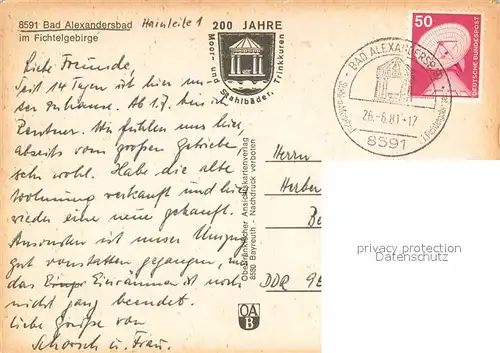 8591 Bad Alexandersbad Hainleite 1
im Fichtelgebirge
200 JAHRE
Moor- und Stahlbäder, Trinkkuren
Liebe Freunde,
seit 14 Tagen ist hier un-
ser Zuhause. Ab 1.7. bin ich
Rentner. Wir fühlen uns hier,
abseits vom großen Getriebe,
sehr wohl. Habe die alte
Wohnung verkauft und hier
wieder eine neue gekauft.
Ansonsten ist unser Umzug
gut vonstatten gegangen, nur
das Einräumen ist noch
nicht ganz beendet.
Liebe Grüße von
Schorsch u. Frau.
Oberfränkischer Ansichtskartenverlag
8580 Bayreuth - Nachdruck verboten
OA
B
BAD ALEXANDERSBAD
26.-6.81-17
8591
50
DEUTSCHE BUNDESPOST
Herrn
Herber
DDR
privacy protection
Datenschutz